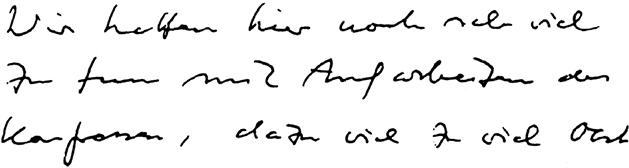 Wir hatten hier noch sehr viel
zu tun mit Aufarbeiten der
, dazu viel zu viel Obst